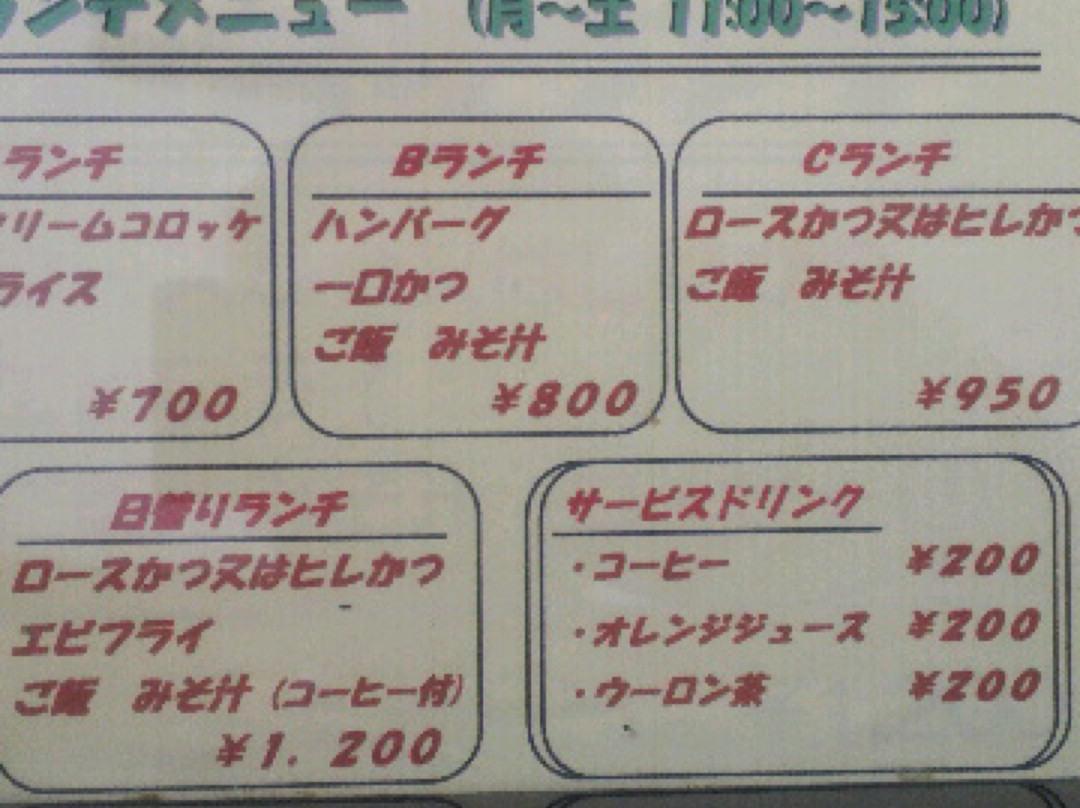 ランチメニュー (月～土 11:00～15:00)
ランチ
クリームコロッケ
ライス
¥700
Bランチ
ハンバーグ
一口かつ
ご飯 みそ汁
¥800
Cランチ
ロースかつ又はヒレかつ
ご飯 みそ汁
¥950
日替りランチ
ロースかつ又はヒレかつ
エビフライ
ご飯 みそ汁 (コーヒー付)
¥1. 200
サービスドリンク
・コーヒー ¥200
・オレンジジュース ¥200
・ウーロン茶 ¥200